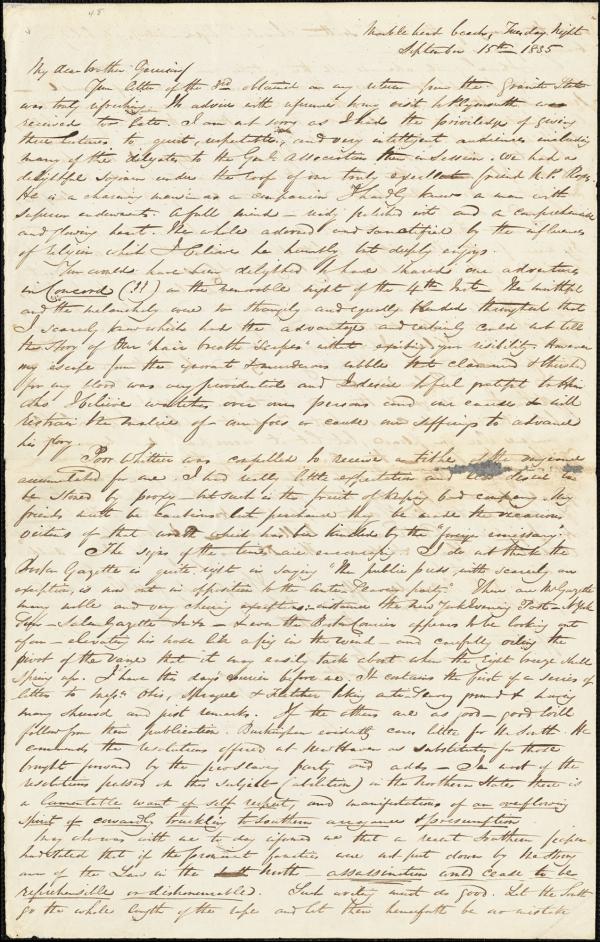 48
Marble head beach, Tuesday Night
September 15th 1835
My dear brother Garrison
Your letter of the 3rd obtained on my return from the Granite State
was truly refreshing. The advice with a home visit to Plymouth was
received too late. I am not sorry as I had the priviledge of giving
three lectures to quiet, respectable, and very intelligent audiences including
many of the delegates to the Genl Association then in Session. We had a
delightful sojourn under the roof of our truly excellent friend N. P. Rogers.
He is a charming man – as a companion I hardly know a man with
superior endowments. A full mind – richly polished wit and a comprehensive
and glowing heart. The whole adorned and sanctified by the influences
of religion which I believe he humbly but deeply enjoys.
You would have been delighted to have shared our adventures
in Concord (!!) on the memorable night of the 4th Inst. The mirthful
and the melancholy were so strangely and equally blended throughout that
I scarcely know which had the advantage and certainly could not tell
the story of our "hair breadth 'scapes" without exciting your risibility. However
my escape from the ignorant & murderous rabble that clamored & thirsted
for my blood was very providential and I desire to feel grateful to Him
who I believe watches over our persons and our cause & will
restrain the malice of our foes or cause our sufferings to advance
his glory.
Poor Whittier was compelled to receive a tithe of the
accumulated for me. I had really little expectation and less desire to
be stoned by proxy – but such is the fruit of keeping bad company. My
friends must be cautious lest perchance they be made the vicarious
victims of that wrath which has been kindled by the "foreign emissary".
The signs of the times are encouraging. I do not think the
Boston Gazette is quite right in saying "the public press, with scarcely an
exception, is now out in opposition to the Anti-Slavery party." There are Mr Gazette
many noble and very cheering exceptions – instance the New York Evening Post – N York
– Salem Gazette &c &c – & even the Boston Courier appears to be looking out
of – elevating his nose like a pig in the wind – and carefully oiling the
pivot of the vane that it may easily tack about when the right breeze shall
spring up. I have this day's Courier before me. It contains the first of a series of
letters to Messrs Otis, Sprague & Fletcher taking anti-slavery ground & having
many shrewd and just remarks. If the others are as good – good will
follow from their publication. Buckingham evidently cares little for the South. He
commends the resolutions offered at New Haven as substitutes for those
brought forward by the pro-slavery party and adds – In most of the
resolutions passed on this subject (abolition) in the Northern States there is
a lamentable want of self respect, and manifestations of an overflowing
spirit of cowardly truckling to Southern arrogance & presumption.
who was with me to day informed me that a recent Southern paper
had stated that if the prominent fanatics were not put down by the strong
arm of the Law in the North – assassination would cease to be
reprehensible or dishonourable. Such writing must do good. Let the South
go the whole length of the rope and let there henceforth be no mistake